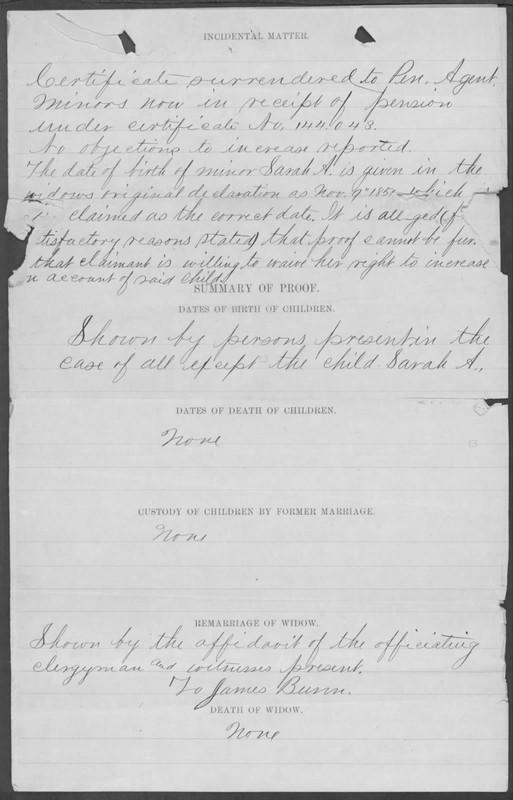 INCIDENTAL MATTER.
Certificate surrendered to Pen. Agent.
Minors now in receipt of pension
under certificate No. 144.043.
No objections to increase reported.
The date of birth of minor Sarah A. is given in the
widows original declaration as Nov. 9" 1857 which
claimed as the correct date. It is alleged (f
tisfactory reasons stated) that proof cannot be fur.
that claimant is willing to waive her right to increase
n account of said child.
SUMMARY OF PROOF.
DATES OF BIRTH OF CHILDREN.
Shown by persons present in the
case of all except the child Sarah A.,
DATES OF DEATH OF CHILDREN.
None
CUSTODY OF CHILDREN BY FORMER MARRIAGE.
None
REMARRIAGE OF WIDOW.
Shown by the affidavit of the officiating
clergyman and witnesses present.
To James Bunn.
DEATH OF WIDOW.
None